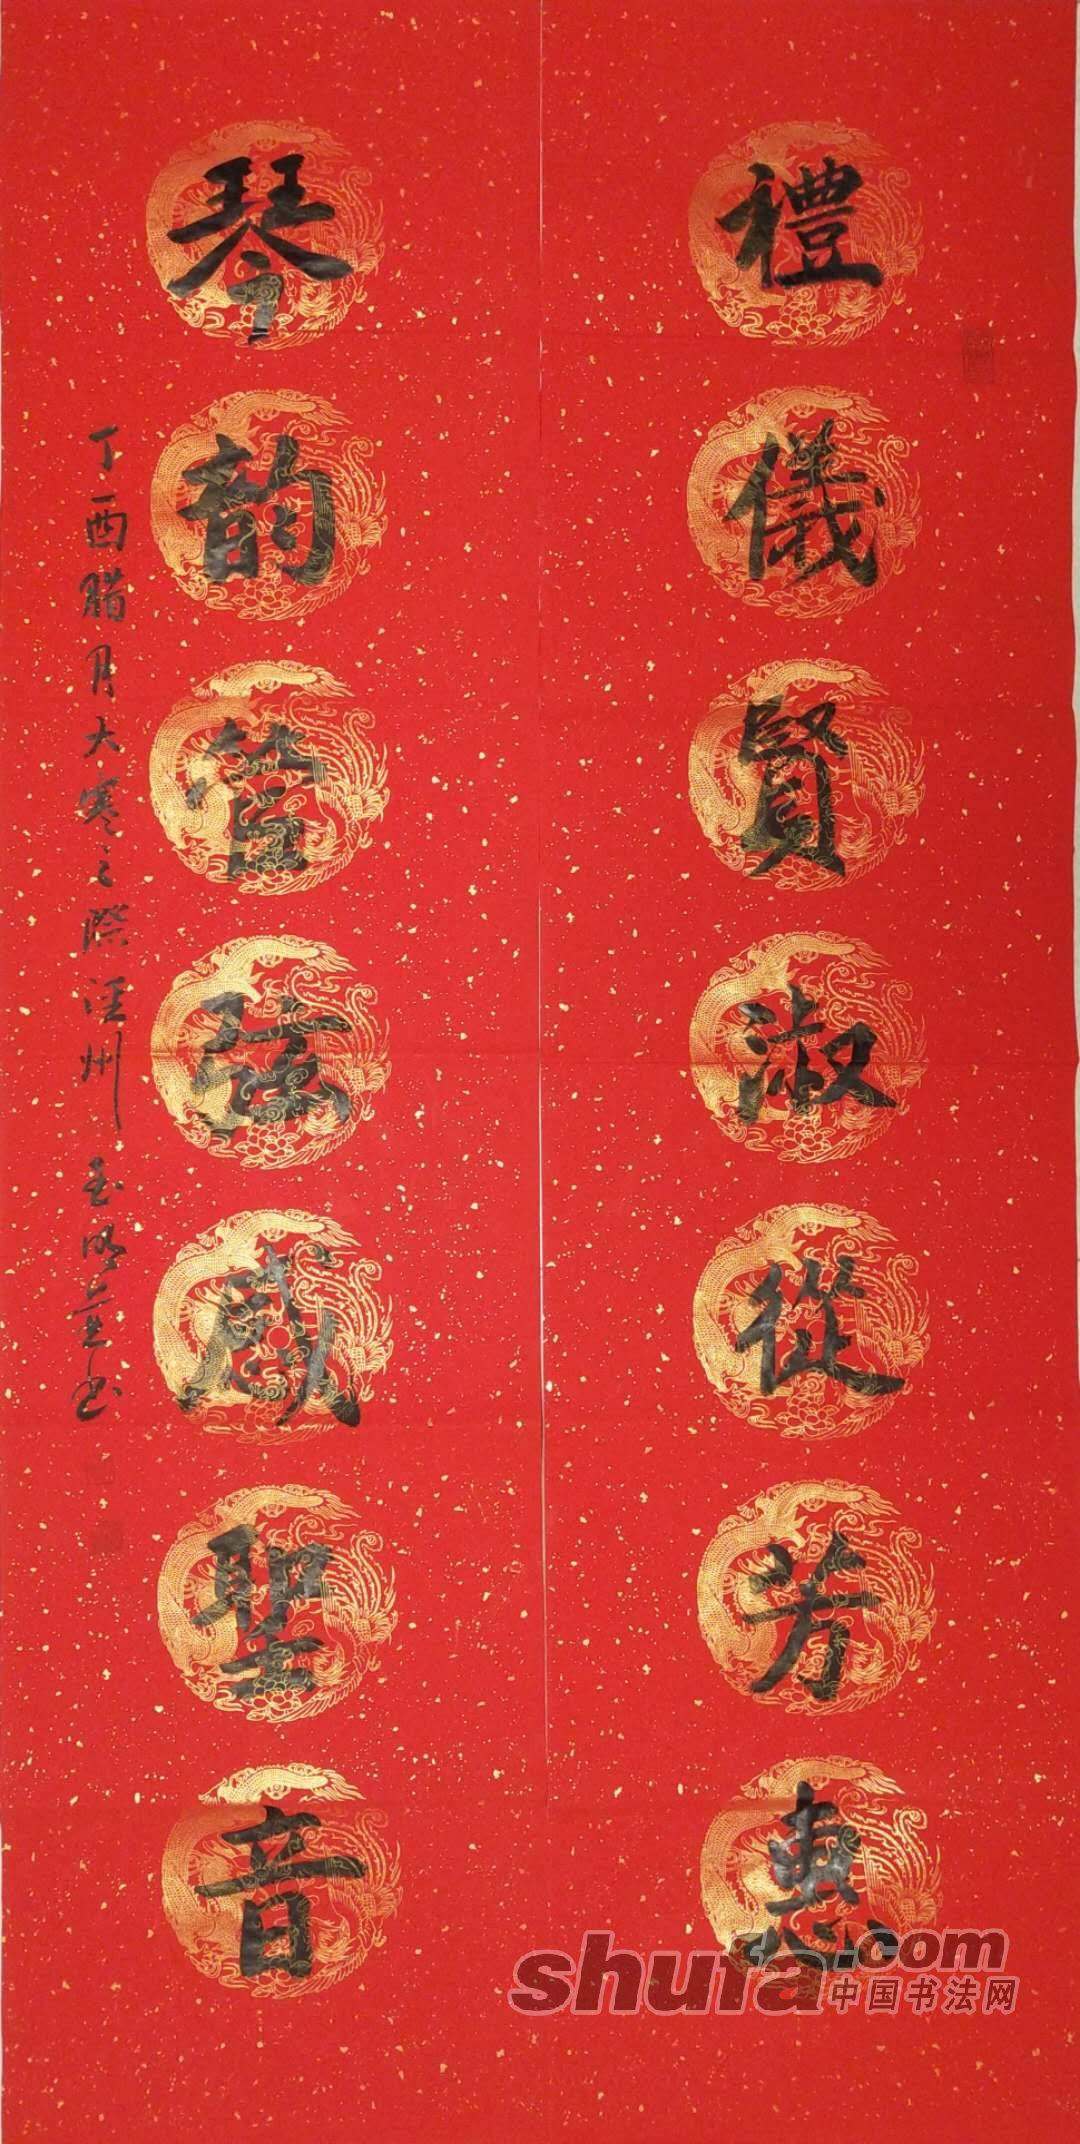 禮儀賢淑從芳惠
琴韵管弦感聖音
丁酉腊月大寒之際涇州
書
shufa.com
中国书法网